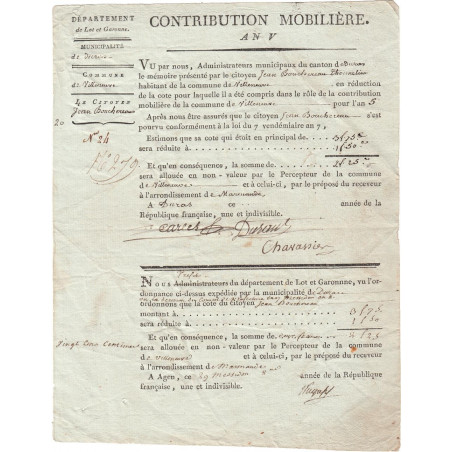 DÉPARTEMENT
de Lot et Garonne.
MUNICIPALITÉ
de Duras
COMMUNE
de Villeneuve
LE CITOYEN
Jean Bouchereau
20
N.° 24
CONTRIBUTION MOBILIÈRE.
AN V
VU par nous, Administrateurs municipaux du canton de Duras
le mémoire présenté par le citoyen Jean Bouchereau
habitant de la commune de Villeneuve en réduction
de la cote pour laquelle il a été compris dans le rôle de la contribution
mobilière de la commune de Villeneuve pour l'an 5
Après nous être assurés que le citoyen Jean Bouchereau s'est
pourvu conformément à la loi du 7 vendémiaire an 7;
Estimons que sa cote qui étoit en principal de 3f 75c
sera réduite à 1f 50
Et qu'en conséquence, la somme de 2f 25c
sera allouée en non-valeur par le Percepteur de la commune
de Villeneuve et à celui-ci, par le préposé du receveur
à l'arrondissement de Marmande
A Duras ce année de la
République française, une et indivisible.
Chavassier
Préfet
NOUS Administrateurs du département de Lot et Garonne, vu l'ordonnance
ci-dessus expédiée par la municipalité de Duras
ordonnons que la cote du citoyen Jean Bouchereau
montant à 3f 75
sera réduite à 1f 50
Et qu'en conséquence, la somme de 2f 25
vingt cinq centimes
sera allouée en non-valeur par le Percepteur de la commune
de Villeneuve et à celui-ci, par le préposé du receveur
à l'arrondissement de Marmande
A Agen, ce 29 Messidor année de la République
française, une et indivisible.